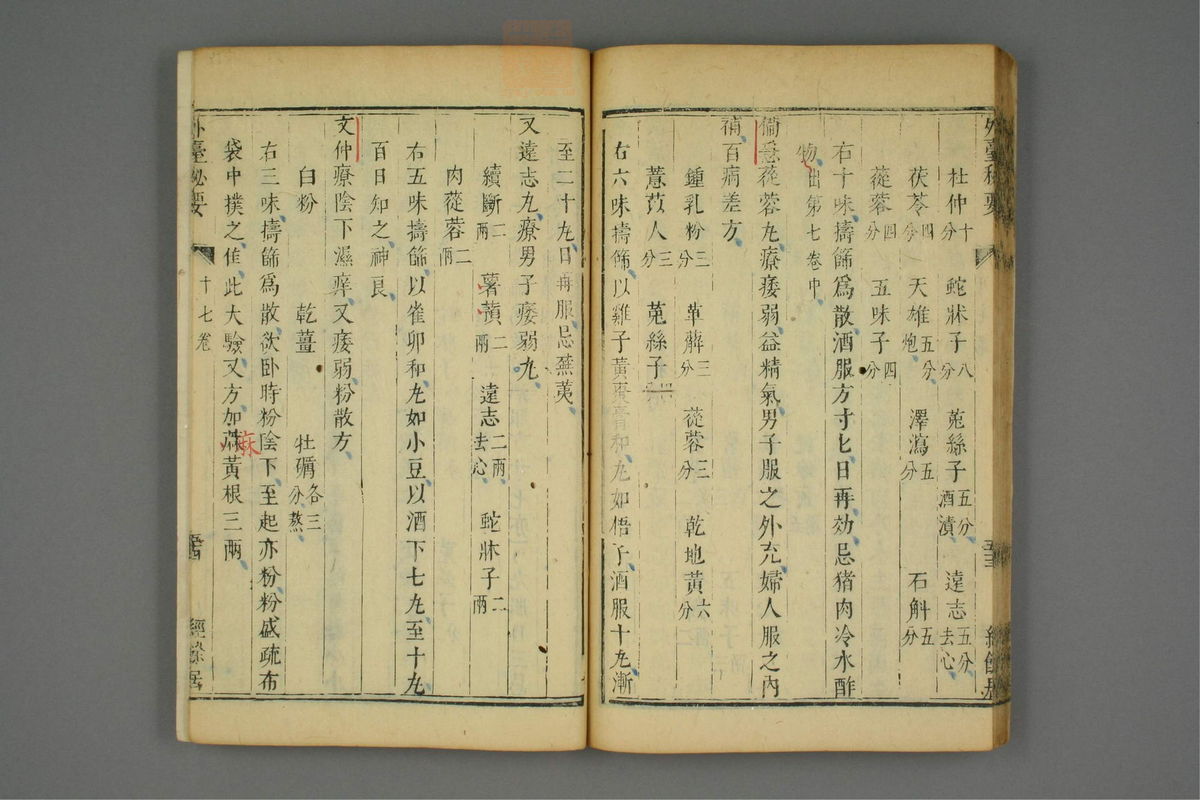 外臺秘要
杜仲十分 蛇牀子八分 菟絲子五分酒漬 遠志五分去心
茯苓四分 天雄五分炮 澤瀉五分 石斛五分
蓯蓉四分 五味子四分
右十味擣篩爲散酒服方寸匕日再効忌猪肉冷水酢
物出第七卷中
備急蓯蓉丸療痿弱益精氣男子服之外充婦人服之內
補百病差方
鍾乳粉三分 萆薢三分 蓯蓉三分 乾地黃六分
薏苡人三分 菟絲子
右六味擣篩以雞子黃棗膏和丸如梧子酒服十丸漸
至二十丸日再服忌蕪荑
又遠志丸療男子痿弱丸
續斷二兩 薯蕷二兩 遠志二兩去心 蛇牀子二兩
肉蓯蓉二兩
右五味擣篩以雀卵和丸如小豆以酒下七丸至十丸
百日知之神良
文仲療陰下濕癢又痿弱粉散方
白粉 乾薑 牡礪各三分熬
右三味擣篩爲散欲卧時粉陰下至起亦粉粉盛疏布
袋中撲之佳此大驗又方加麻黃根三兩
外臺秘要 十七卷 經餘居